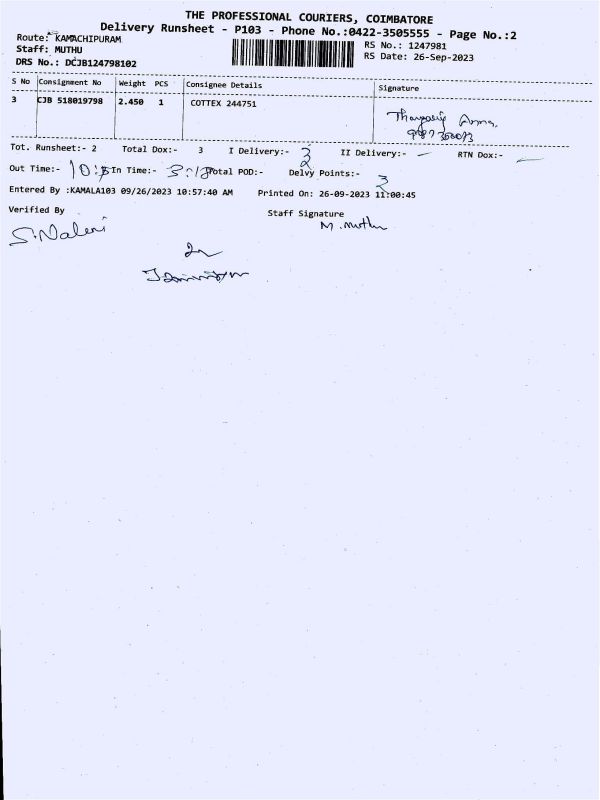 THE PROFESSIONAL COURIERS, COIMBATORE
Delivery Runsheet - P103 - Phone No.:0422-3505555 - Page No.:2
Route: KAMACHIPURAM
RS No.: 1247981
Staff: MUTHU
RS Date: 26-Sep-2023
DRS No.: DCJB124798102
S No Consignment No Weight PCS Consignee Details Signature
3 CJB 518019798 2.450 1 COTTEX 244751
Tot. Runsheet:- 2 Total Dox:- 3 I Delivery:- 3 II Delivery:- - RTN Dox:- -
Out Time:- In Time:- Total POD:- Delvy Points:- 3
Entered By :KAMALA103 09/26/2023 10:57:40 AM Printed On: 26-09-2023 11:00:45
Verified By Staff Signature
S. Naleni M. Muthu